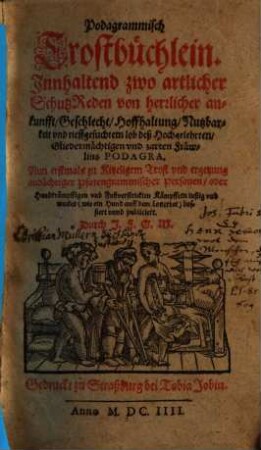 Podagrammisch
Trostbüchlein.
Innhaltend zwo artlicher
SchutzReden von herrlicher an-
kunfft/Geschlecht/Hoffhaltung/Nutzbar-
keit vnd tieffgesuchtem lob deß Hochgelehrten/
Gliedermächtigen vnd zarten Fräw-
lins PODAGRA,
Nun erstmals zu Kitzeligem Trost vnd ergetzung
andächtiger personen/oder
Handkrämpffigen vnd
lustig vnd
wacker (wie ein Hund auff dem Lotterbet) bos-
siert vnnd publiciert.
Durch J. F. G. M.
Christian
Gedruckt zu Straßburg bei Tobia Jobin.
Anno M. DC. IIII.